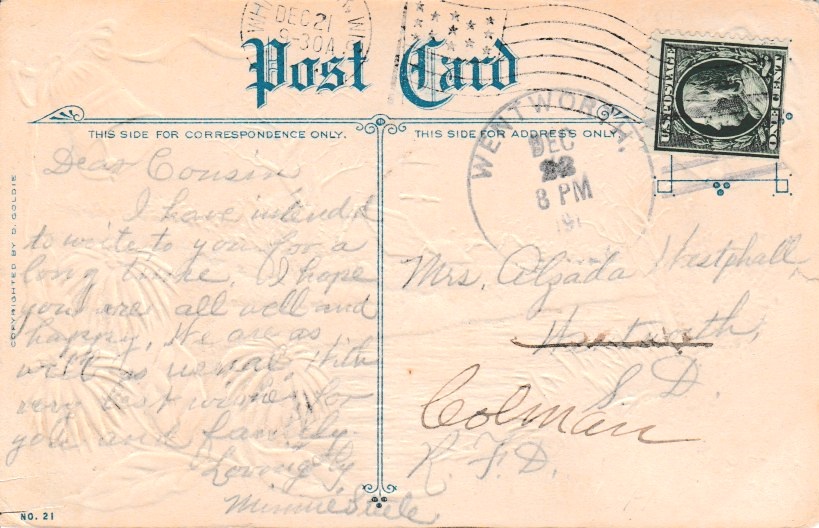 DEC 21
9-30 A
Post Card
UNITED STATES
ONE CENT
THIS SIDE FOR CORRESPONDENCE ONLY.
THIS SIDE FOR ADDRESS ONLY
WENTWORTH,
DEC
22
8 PM
191
Dear Cousin
I have intended
to write to you for a
long time. I hope
you are all well and
happy, We are as
well as usual, With
very best wishes for
you and family.
Lovingly,
Minnie Steele
Mrs. Alzada Westphall
Wentworth,
S. D.
Colman
R. F. D.
COPYRIGHTED BY S. GOLDIE
NO. 21